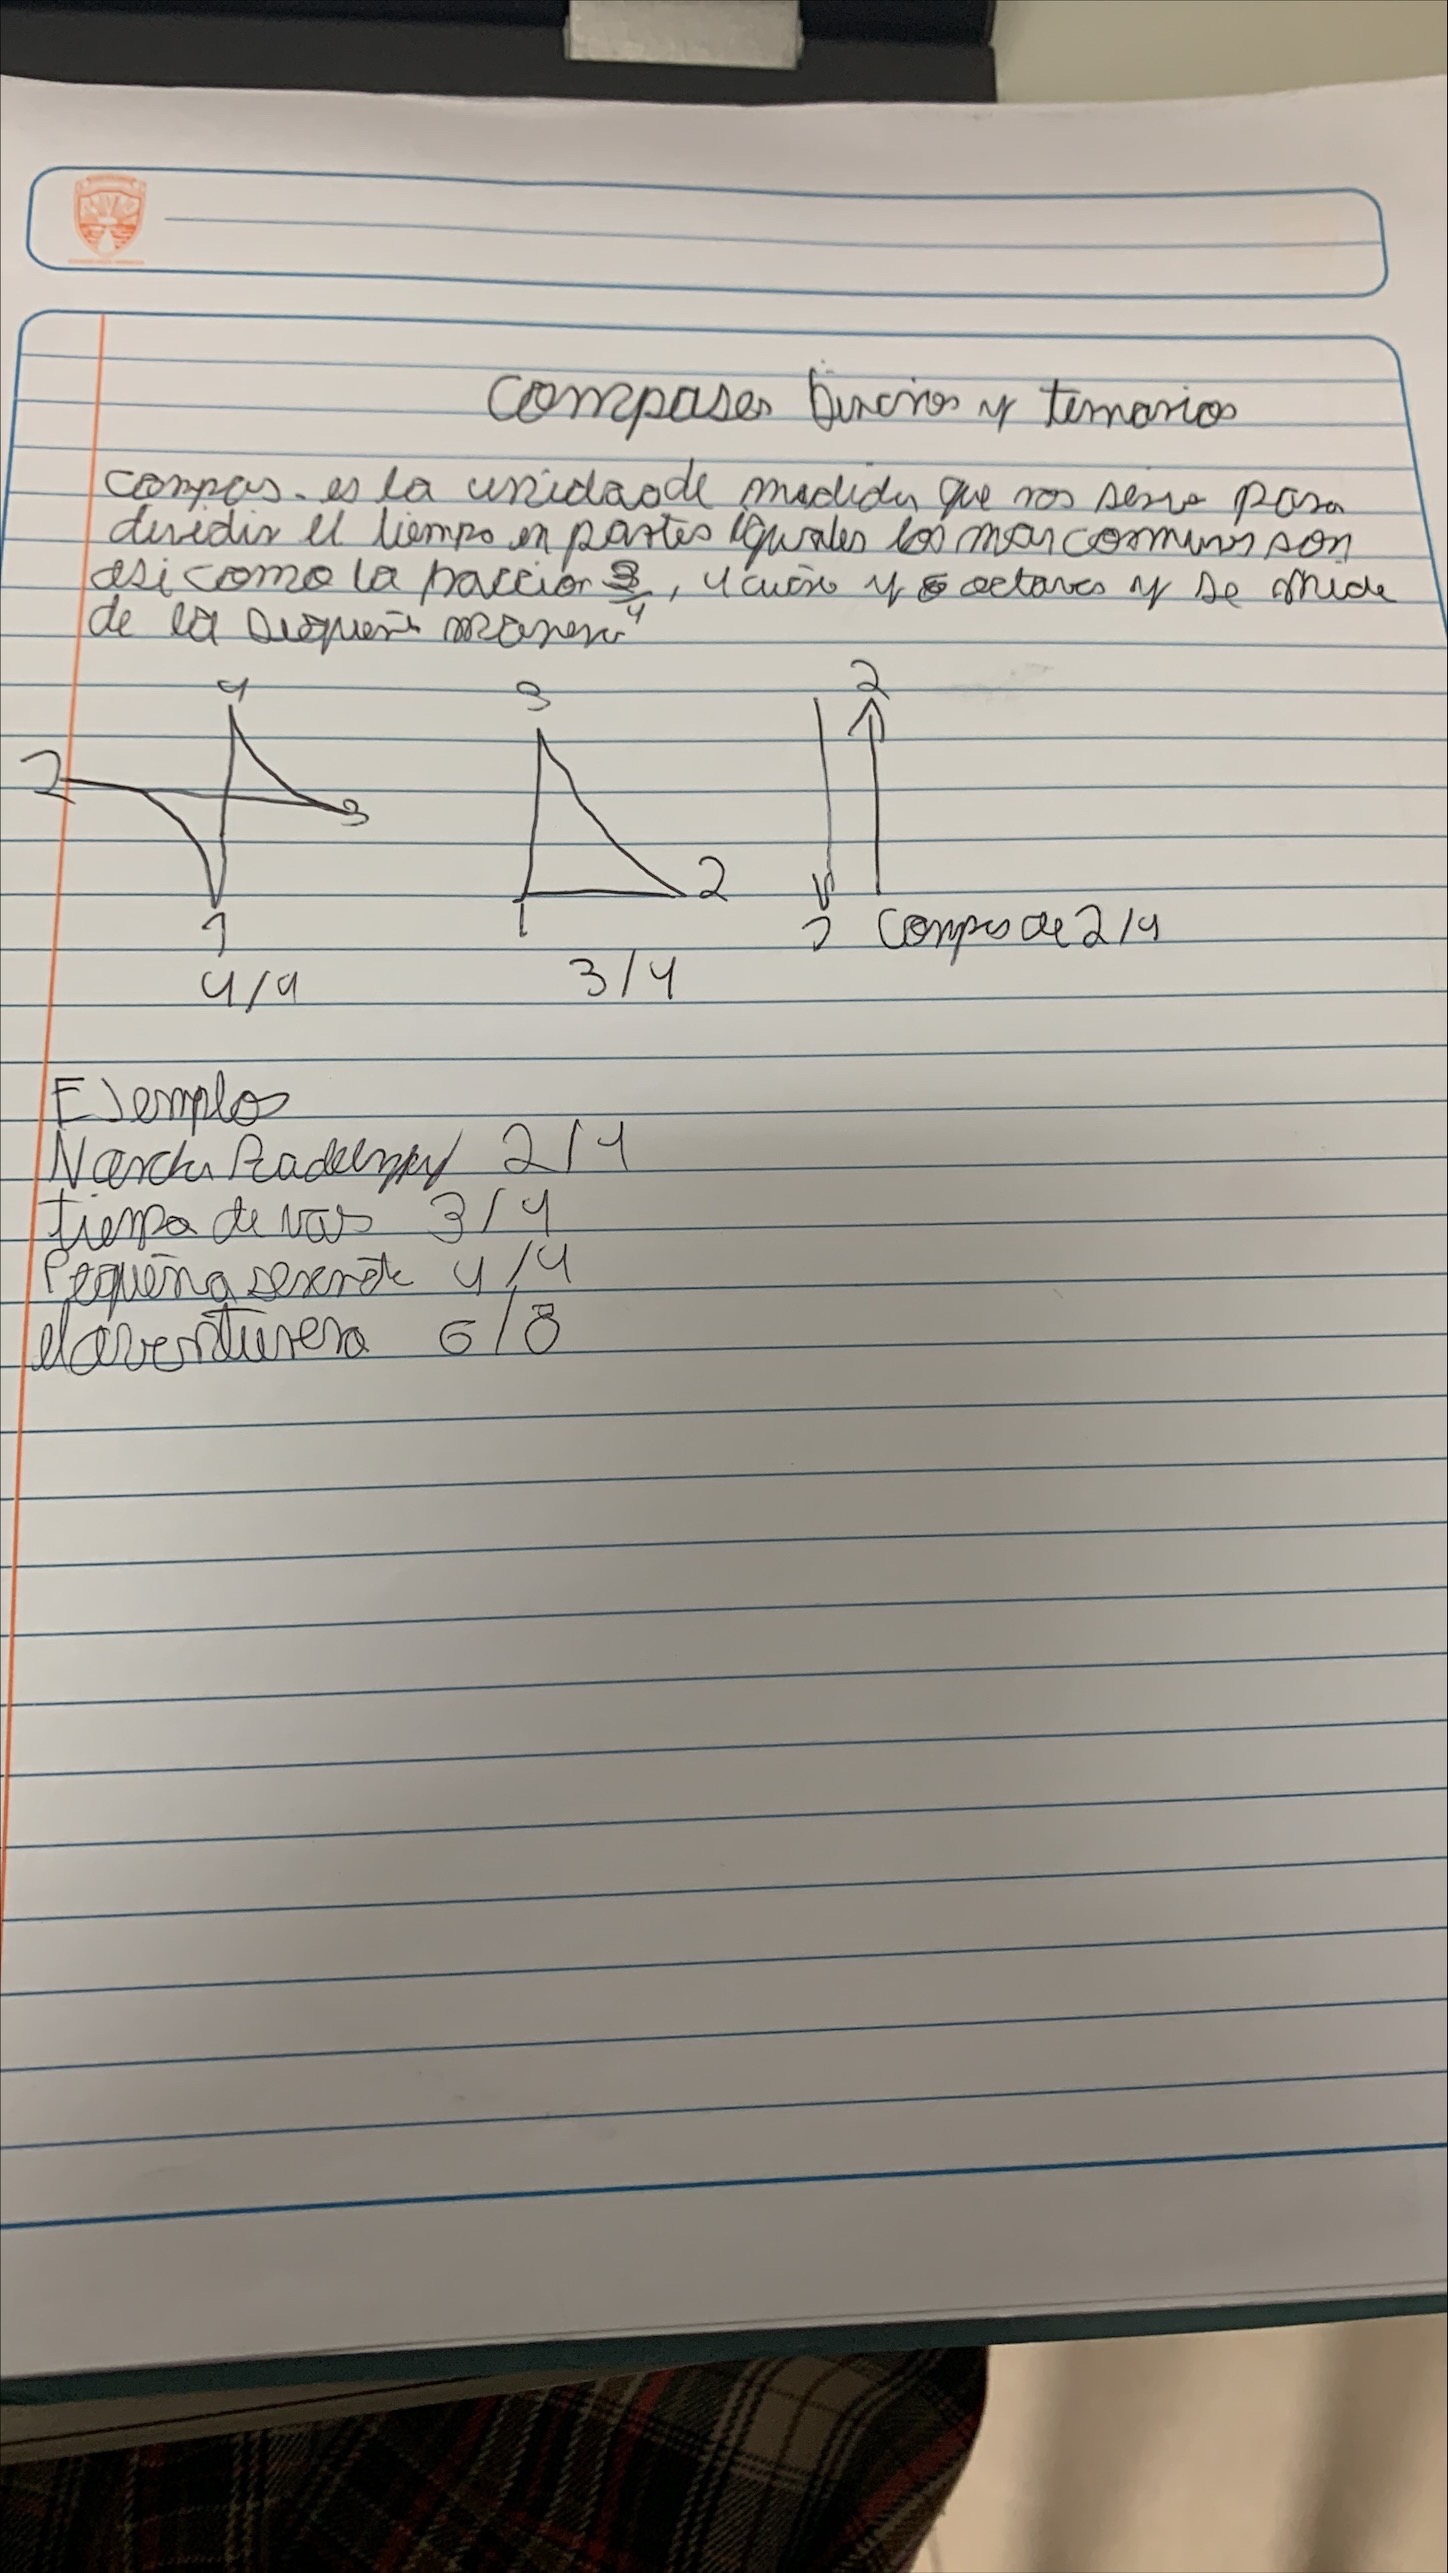 compases binarios y ternarios
compas. es la unidad de medida que nos sirve para
dividir el tiempo en partes iguales los mas comunes son
asi como la fraccion 3/4, 4 y 6 octavos y se mide
de la manera
4 3 2
2 3
2
1 1 compas de 2/4
4/4 3/4
Ejemplos
Radetzky 2/4
tiempo de vals 3/4
Pequeña serenata 4/4
el aventurero 6/8